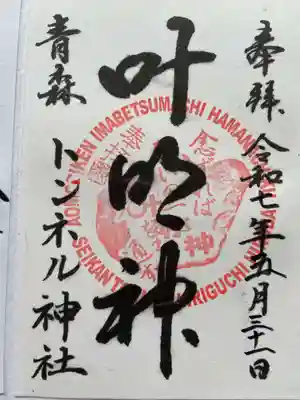 奉拝 令和七年五月三十一日
叶明神
青森 トンネル神社
IMABETSUMACHI HAMANA
SEIKAN
IRIGUCHI
神